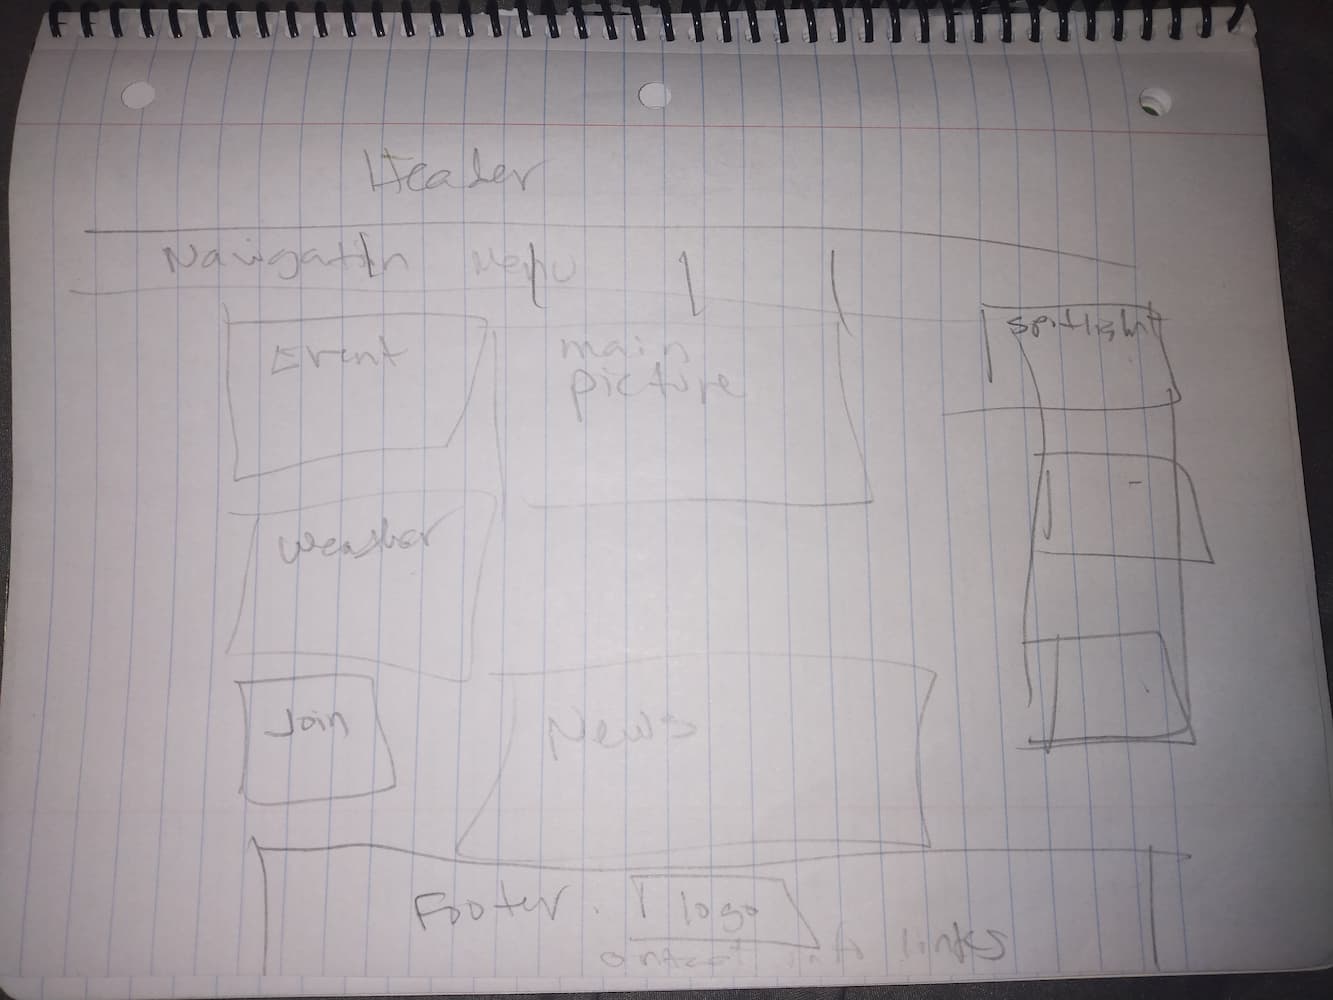 Header
Navigation Menu
Event
main
picture
Spotlight
Weather
Join
News
Footer.
logo
contact info links